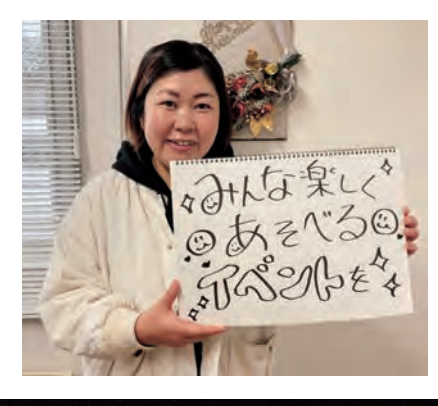 みんな楽しく
あそべる
イベントを